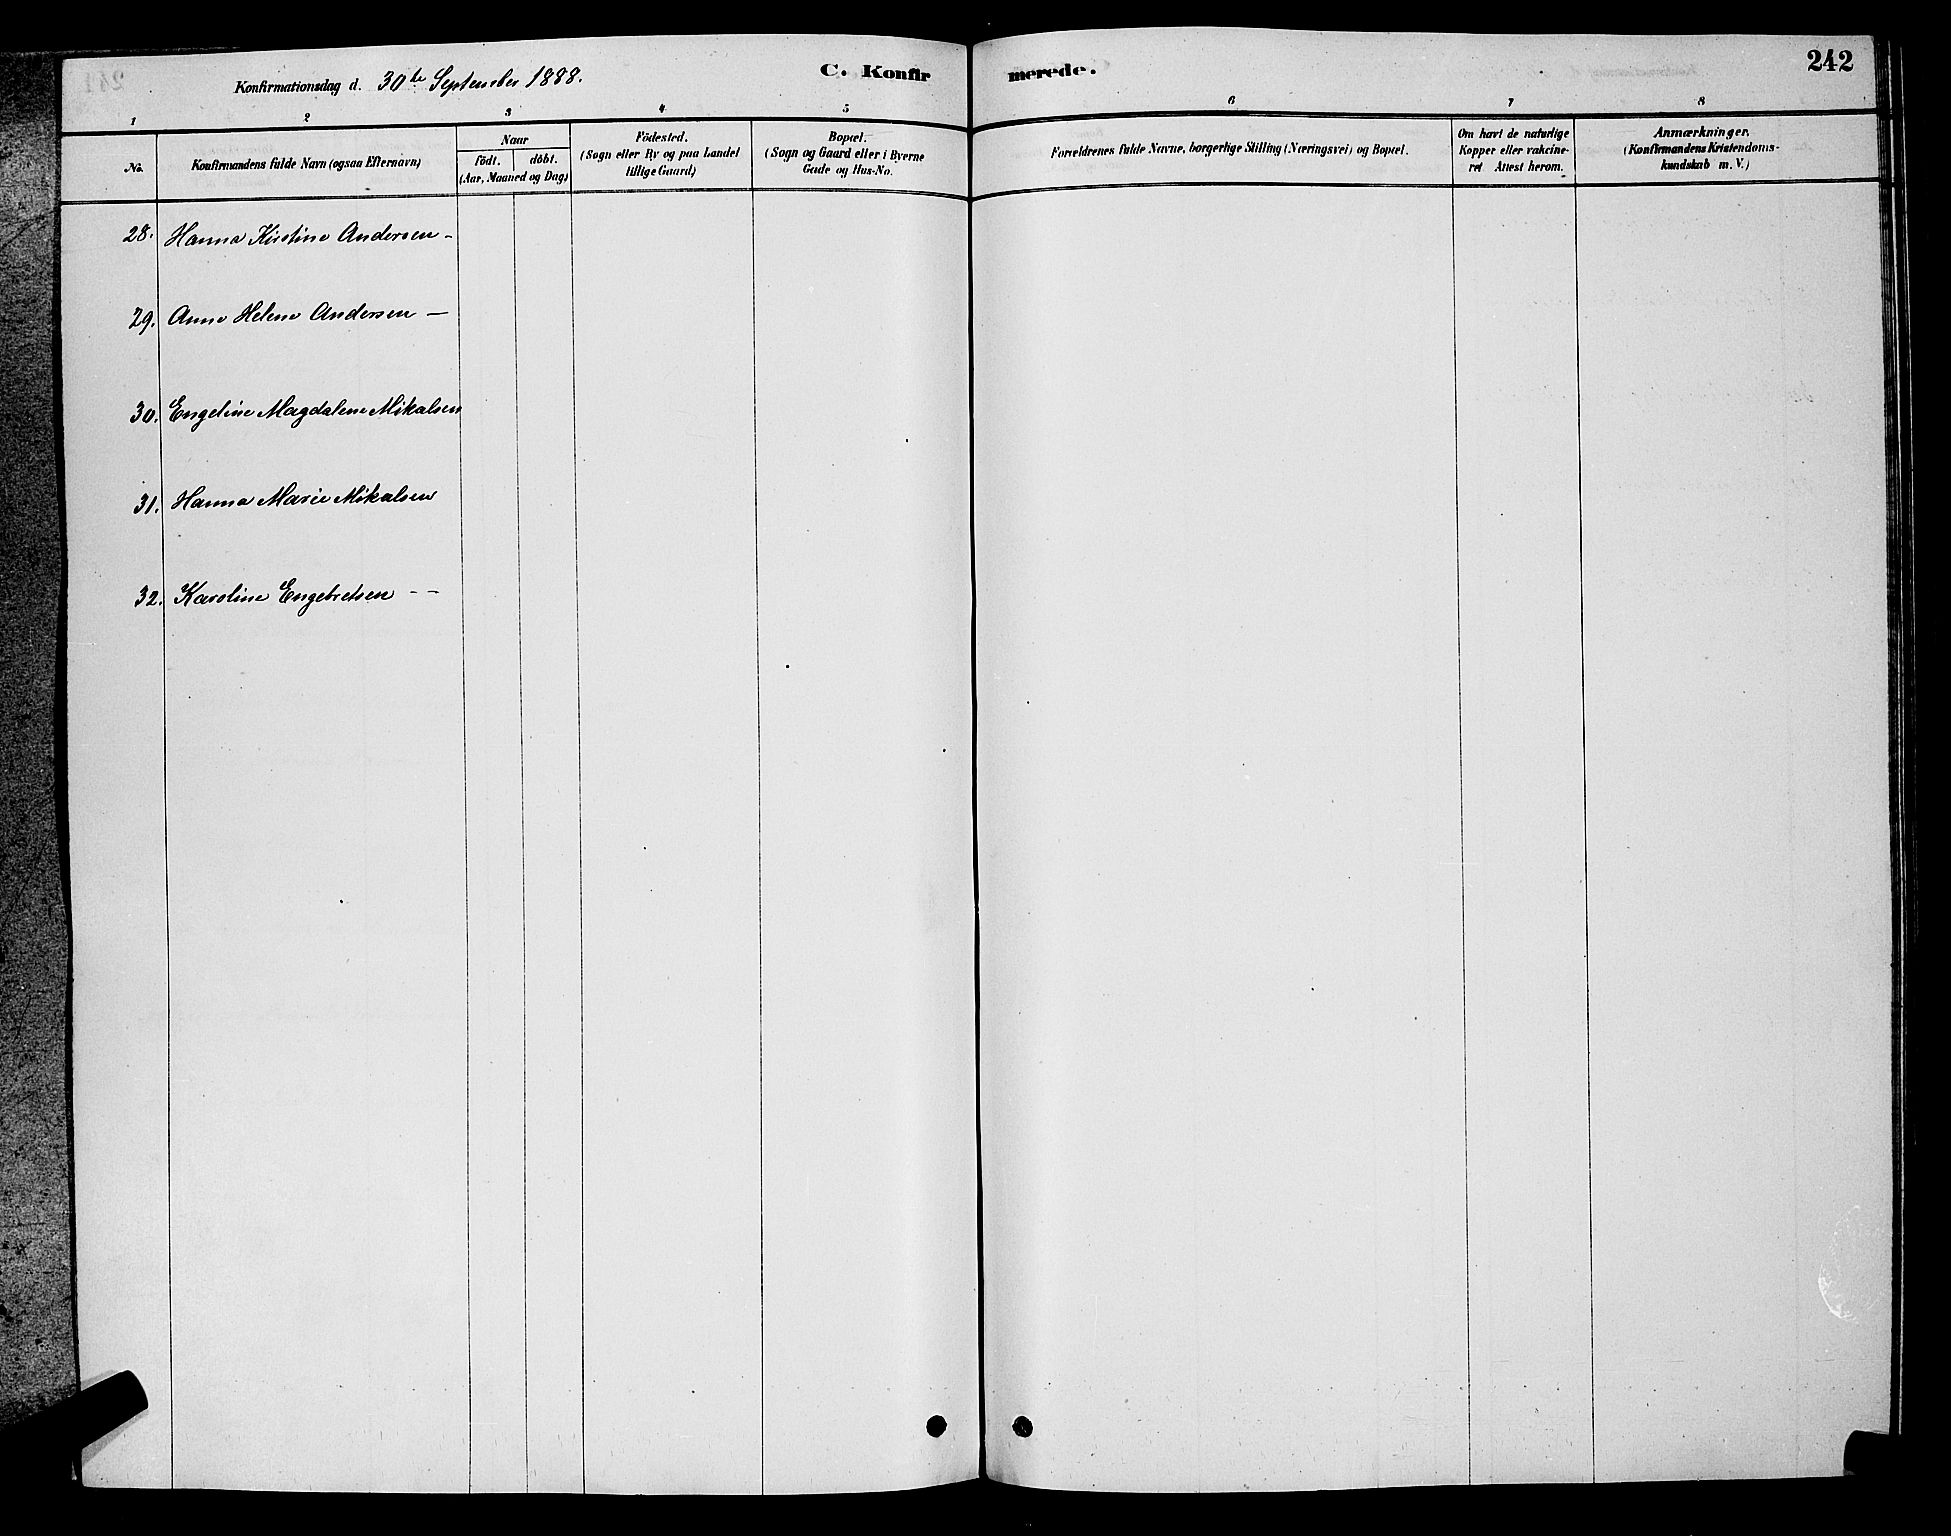 Konfirmationsdag d. 30te September 1888.
C. Konfir merede.
242
1 2 3 4 5 6 7 8
No.
Konfirmandens fulde Navn (ogsaa Efternavn)
Naar
födt. döbt.
(Aar, Maaned og Dag)
Födested.
(Sogn eller By og paa Landet
tillige Gaard)
Bopæl.
(Sogn og Gaard eller i Byerne
Gade og Hus-No.
Forældrenes fulde Navne, borgerlige Stilling (Næringsvei) og Bopæl.
Om havt de naturlige
Kopper eller vakcine-
ret Attest herom.
Anmærkninger.
(Konfirmandens Kristendoms-
kundskab m. V.)
28. Hanna Kirstine Andersen -
29. Anne Helene Andersen —
30. Engeline Magdalene Mikalsen
31. Hanna Marie Mikalsen
32. Karoline Engebretsen - -